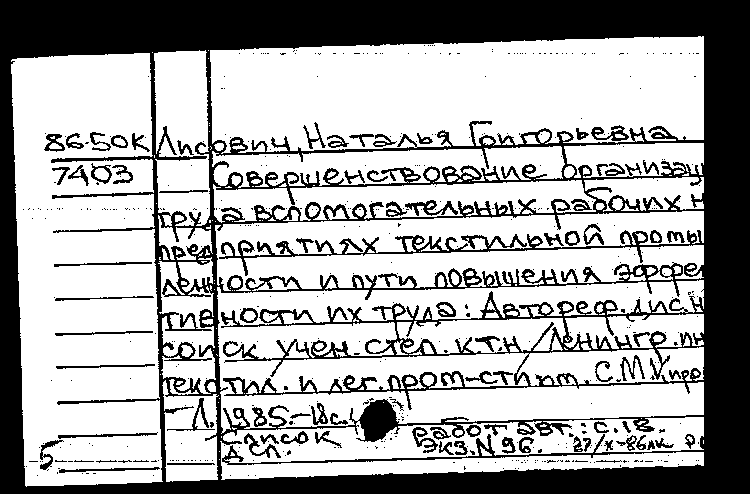 86-50К Лисович, Наталья Григорьевна.
7403 Совершенствование организац
труда вспомогательных рабочих н
предприятиях текстильной промы
ленности и пути повышения эффек
тивности их труда: Автореф. дис. н
соиск. учен. степ. к.т.н. / Ленингр. ин
текстил. и лег. пром-сти им. С.М. Киро
- Л. 1985.-18 с.
Список работ авт.: с.18.
ДСП. Экз. N 96. 27/X-86
5